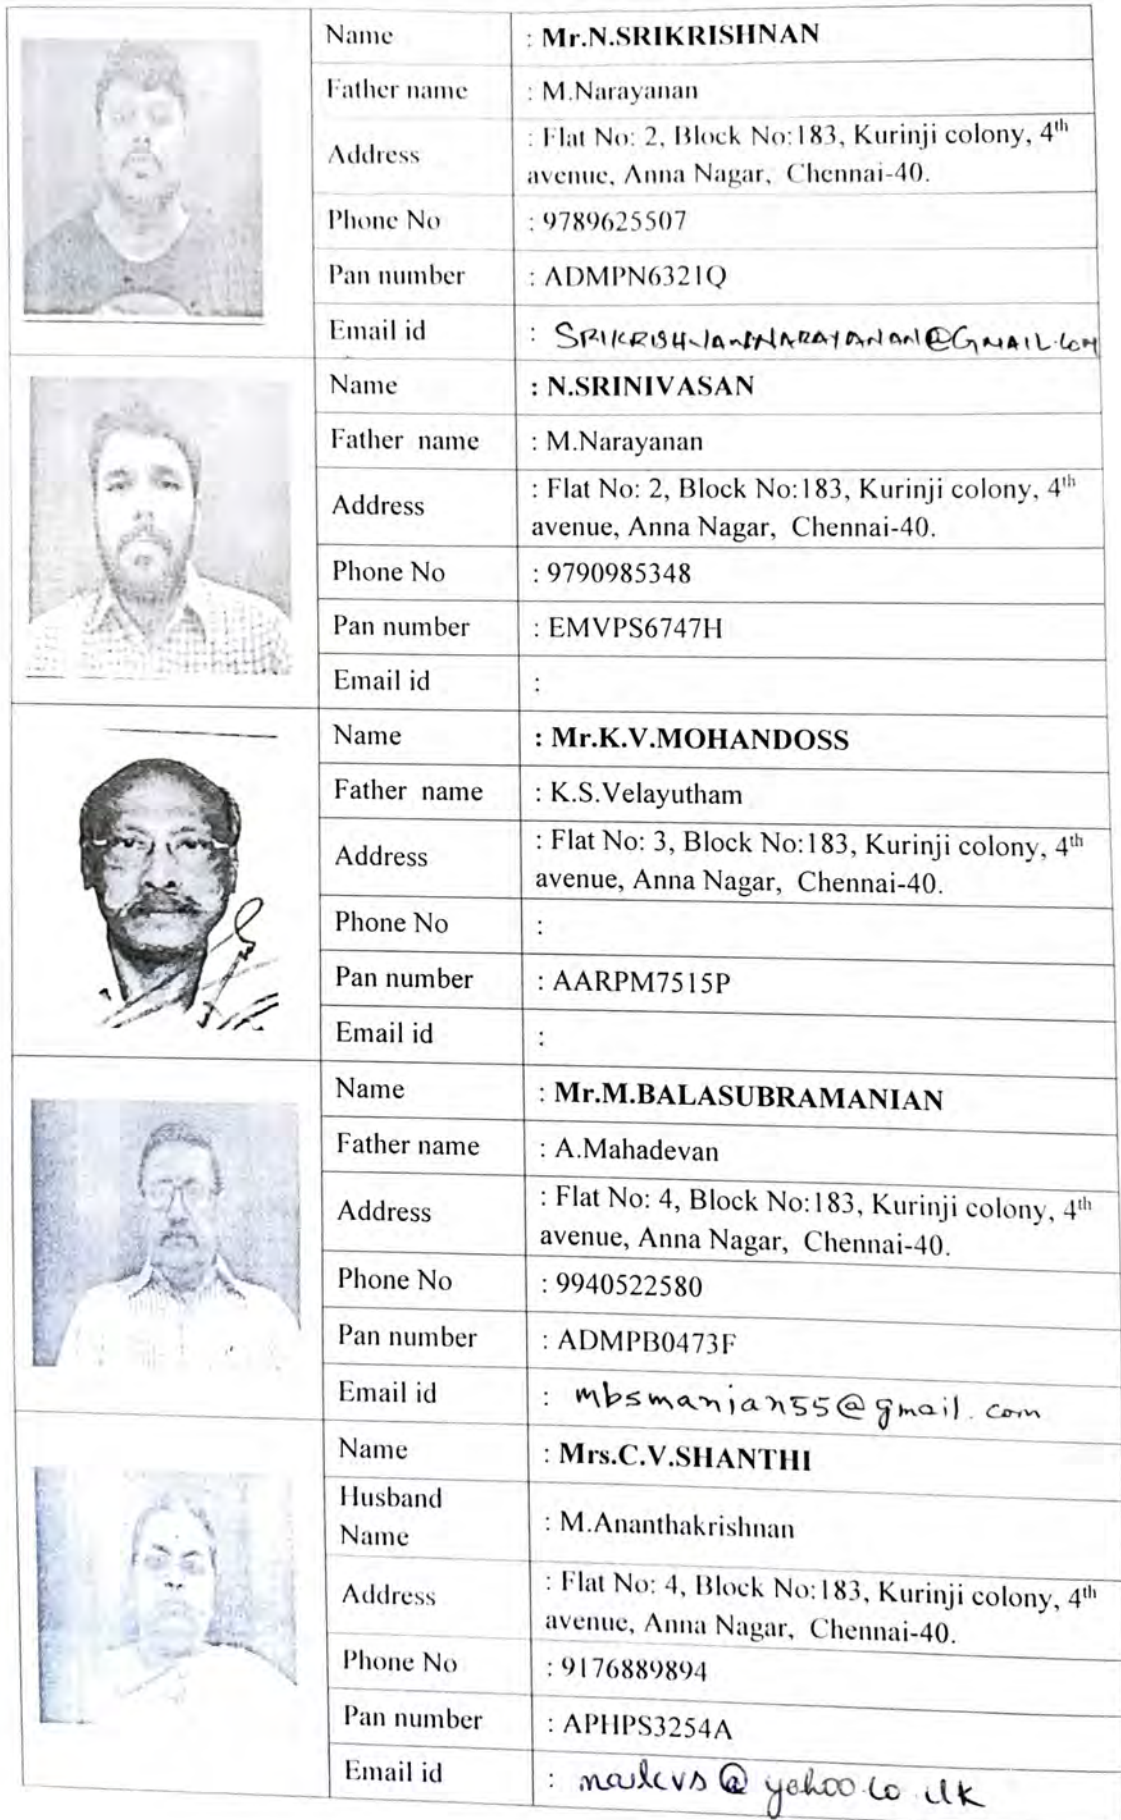 Name : Mr.N.SRIKRISHNAN
Father name : M.Narayanan
Address : Flat No: 2, Block No:183, Kurinji colony, 4th
avenue, Anna Nagar, Chennai-40.
Phone No : 9789625507
Pan number : ADMPN6321Q
Email id :
Name : N.SRINIVASAN
Father name : M.Narayanan
Address : Flat No: 2, Block No:183, Kurinji colony, 4th
avenue, Anna Nagar, Chennai-40.
Phone No : 9790985348
Pan number : EMVPS6747H
Email id :
Name : Mr.K.V.MOHANDOSS
Father name : K.S.Velayutham
Address : Flat No: 3, Block No:183, Kurinji colony, 4th
avenue, Anna Nagar, Chennai-40.
Phone No :
Pan number : AARPM7515P
Email id :
Name : Mr.M.BALASUBRAMANIAN
Father name : A.Mahadevan
Address : Flat No: 4, Block No:183, Kurinji colony, 4th
avenue, Anna Nagar, Chennai-40.
Phone No : 9940522580
Pan number : ADMPB0473F
Email id : mbsmanian55@gmail.com
Name : Mrs.C.V.SHANTHI
Husband
Name : M.Ananthakrishnan
Address : Flat No: 4, Block No:183, Kurinji colony, 4th
avenue, Anna Nagar, Chennai-40.
Phone No : 9176889894
Pan number : APHPS3254A
Email id :